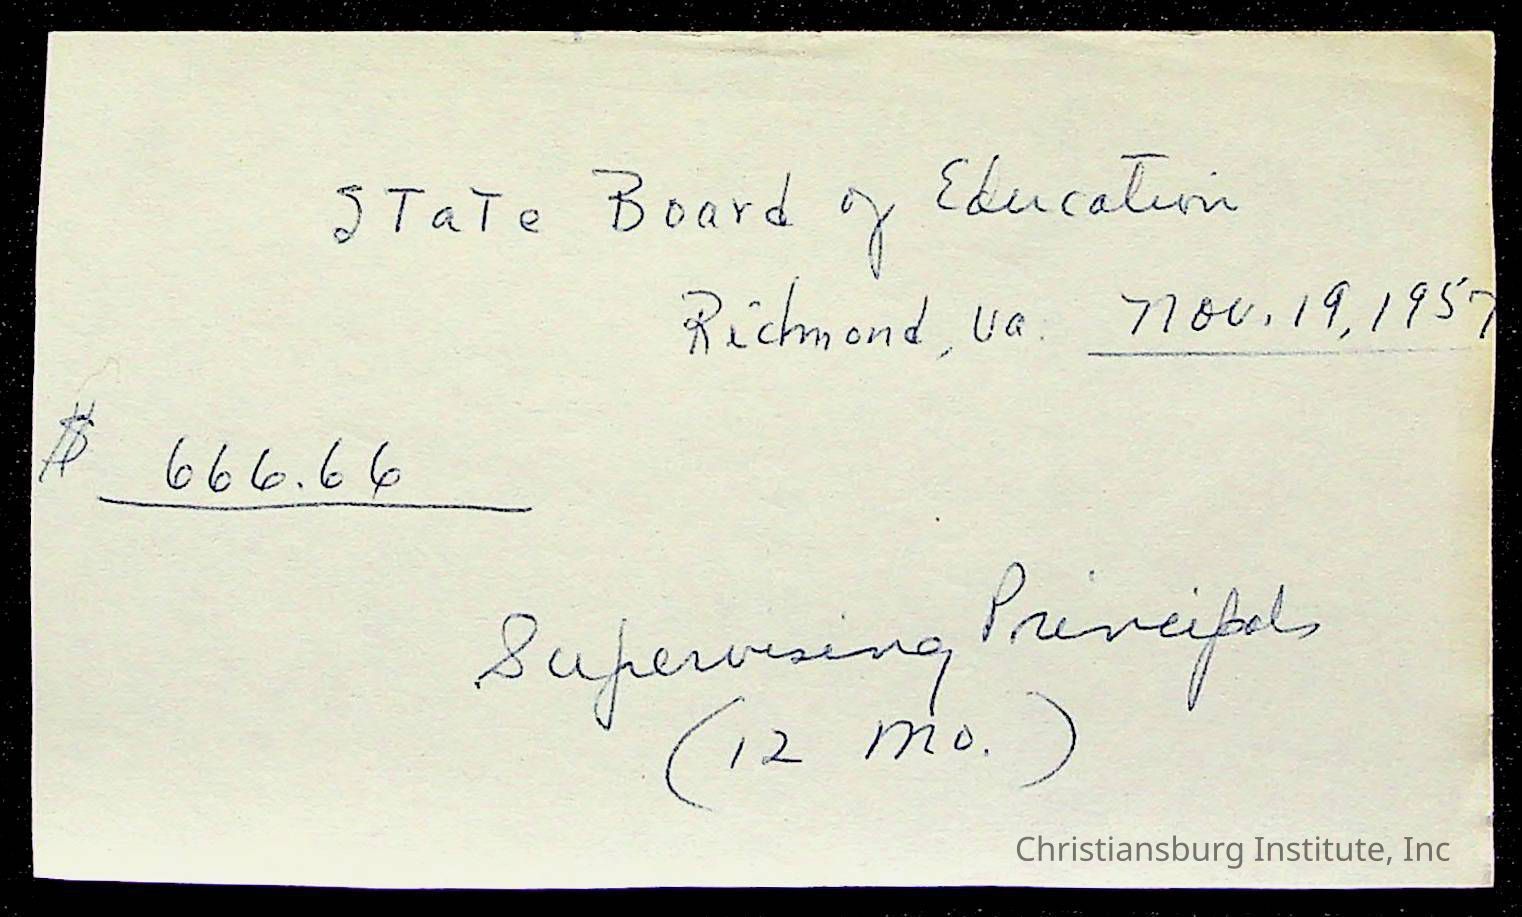 State Board of Education
Richmond, Va. Nov. 19, 1957
$ 666.66
Supervising Principals
(12 Mo.)
Christiansburg Institute, Inc